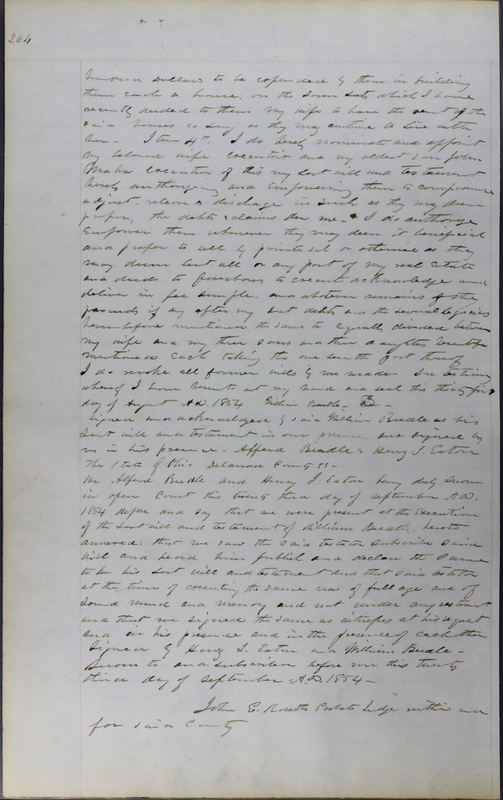 204
hundred dollars to be expended by them in building
them each a house, on the town lots which I have
recently deeded to them my wife to have the rent of the
said houses so long as they may continue to live with
her - Item 4th I do hereby nominate and appoint
my beloved wife executrix and my oldest son John
executor of this my last will and testament
hereby authorizing and Empowering them to compromise
adjust, release & discharge in such as they may deem
proper, the debts & claims due me - I do authorize
Empower them whenever they may deem it beneficial
and proper to sell by private sale or otherwise as they
may deem best all or any part of my real Estate
and deeds to purchasers to execute acknowledge and
deliver in fee simple. and remains of the
proceeds if any after my just debts and the several legacies
herein before mentioned the same to Equally divided between
my wife and my three sons and
mentioned Each taking the one part thereof
I do revoke all former wills by me made - In testimony
whereof I have hereunto set my hand and seal this thirty first
day of August A.D. 1854 William Beadle
Signed and acknowledged by said William Beadle as his
last will and testament in our presence and signed by
us in his presence - Alfred Beadle - Henry S. Eaton
The State of Ohio Delaware County ss -
We Alfred Beadle and Henry S Eaton being duly sworn
in open Court this twenty third day of September A.D.
1854 depose and say that we were present at the Execution
of the last will and testament of William Beadle, hereto
annexed: that we saw the said testator subscribe said
will and heard him publish and declare the same
to be his last will and testament and that said testator
at the time of executing the same was of full age and of
sound mind and memory and not under any restraint
and that we signed the same as witnesses at his request
and in his presence and in the presence of each other
Signed by Henry S. Eaton and William Beadle -
Sworn to and subscribed before me this twenty
third day of September A.D. 1854 -
John E. Probate Judge within and
for said County